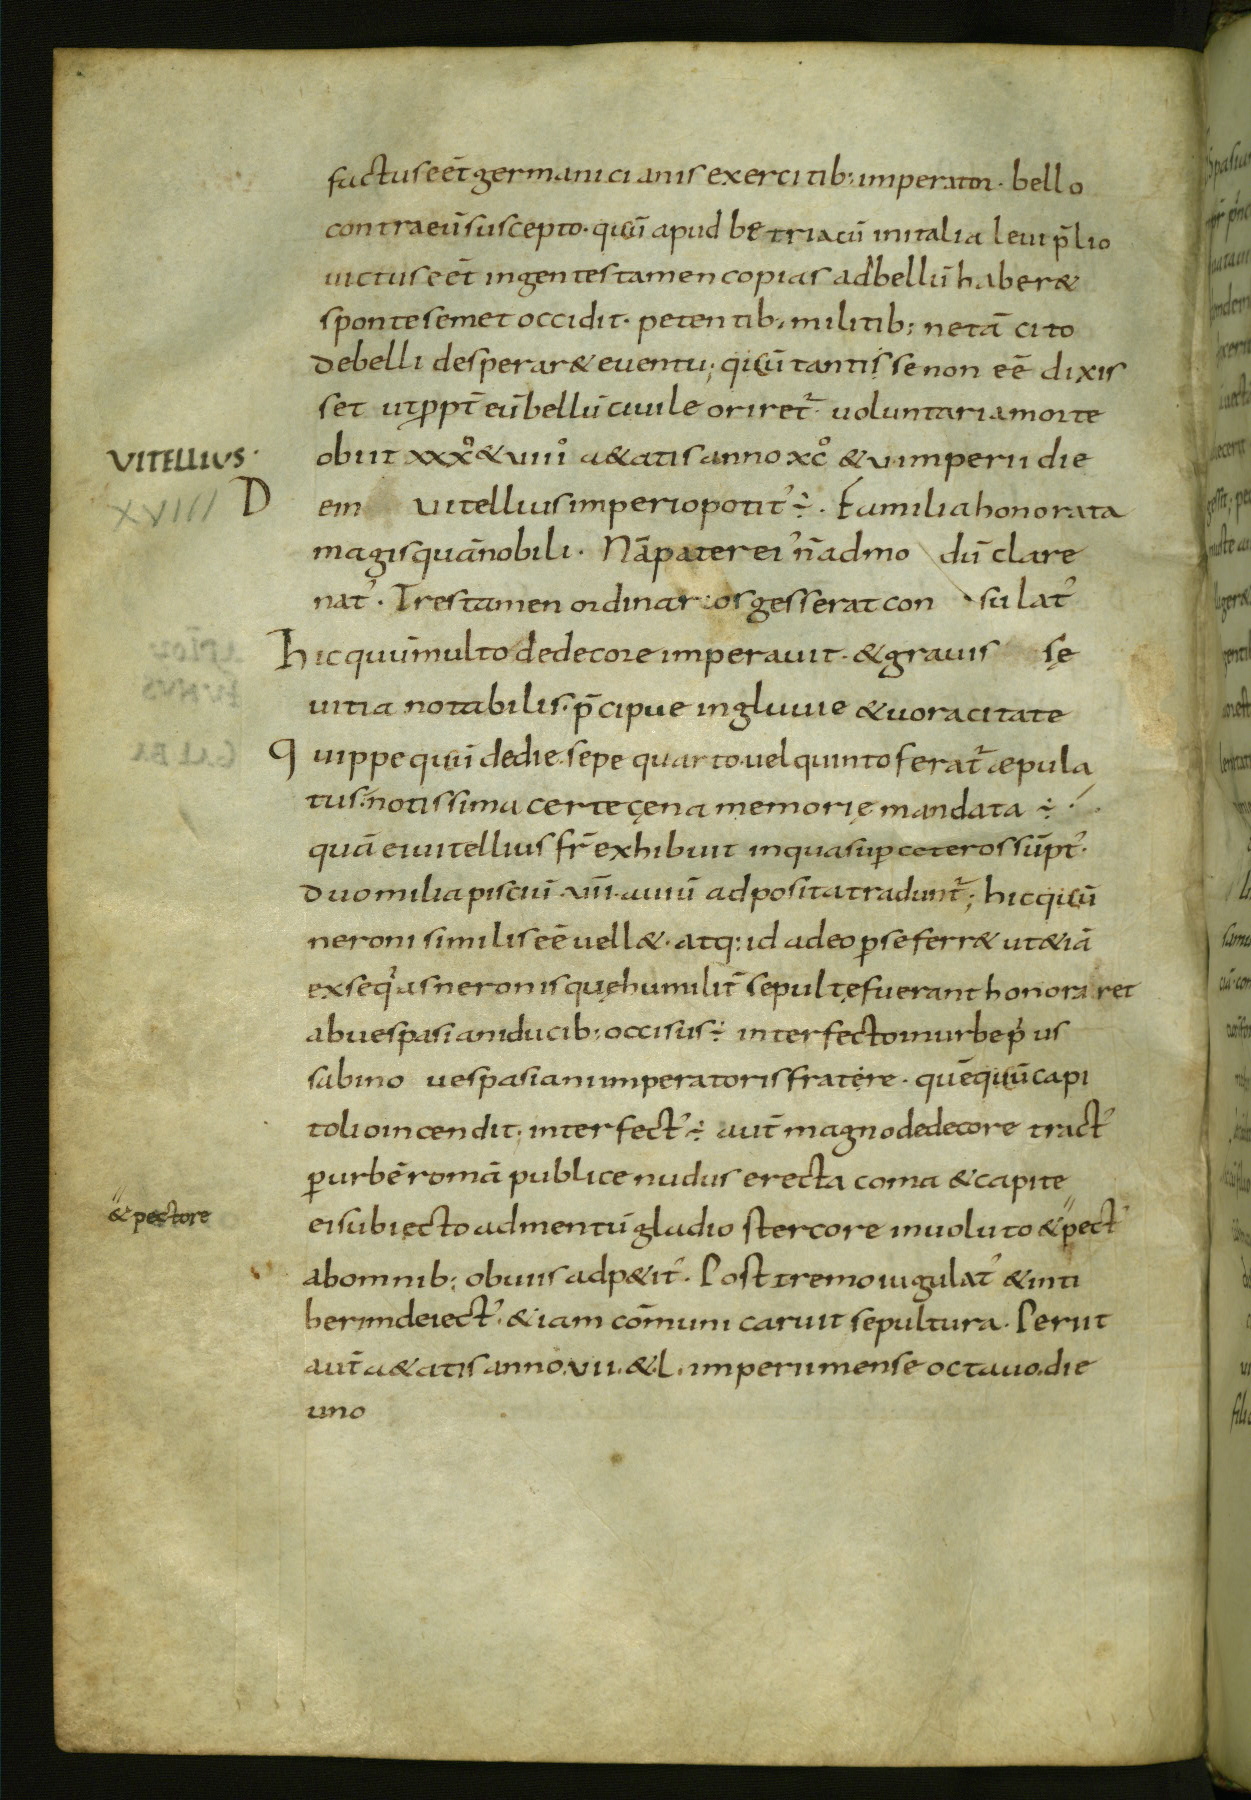 factus eēt germanicianis exercitib; imperator. bello
contra eū suscepto. quū apud betriacū in italia leui p̄lio
uictus eēt ingentes tamen copias ad bellū haber&
sponte semet occidit. petentib; militib; ne tā cito
debelli desperar& euentu; quū tantis se non eē dixis
set ut ppt̄ eū bellū ciuile oriret̄. uoluntaria morte
obiit xxxº & uiiiº a&atis anno xcº & u imperii die
VITELLIUS.
D em uitellius imperio potit' ÷. Familia honorata
magis quā nobili. Nā pater ei' n̄ admo dū clare
nat'. Tres tamen ordinarios gesserat con sulat'
hic quū multo dedecore imperauit. & graui s sę
uitia notabilis. p̄cipue ingluuie & uoracitate
Q uippe quū de die. sepe quarto. uel quinto ferat̄ æpula
tus. notissima certe çena memorię mandata ÷.
quā ei uitellius fr̄ exhibuit in qua sup ceteros sūpt'.
duo milia pisciū. uii. auiū adposita tradunt̄; hic quū
neroni similis eē uell&. atq; id adeo p se ferr& ut &iā
exseq'as neronis quę humilit̄ sepultę fuerant honora ret
a buespasiani ducib; occisus ÷ interfecto in urbe p' us
sabino uespasiani imperatoris fratere. quē quū capi
tolio incendit; interfect' ÷ aut̄ magno dedecore tract'
p urbē romā publice nudus erecta coma & capite
& pectore
ei subiecto ad mentū gladio stercore inuoluto & pect'
ab omnib; obuiis adp&it'. Post tremo iugulat' & in ti
berim deiect'. & iam cōmuni caruit sepultura. Periit
aut̄ a&atis anno. uii. & l. imperii mense octauo. die
uno